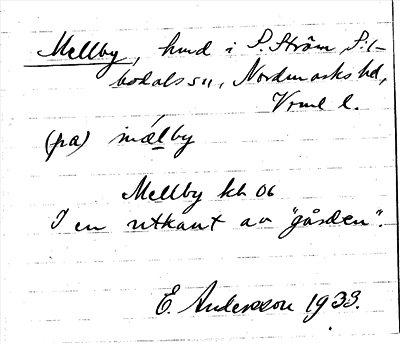 Mellby, hmd i S. Ström, Sil-
bodals sn, Nordmarks hd,
Vrml l.
(pa) mælby
Mellby kb 06
I en utkant av "gården".
E. Andersson 1933.